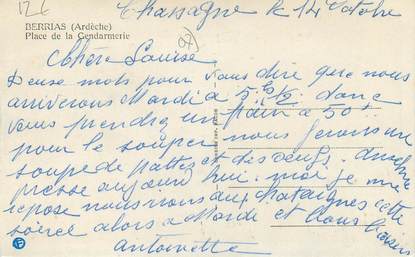 126
Chassagne le 14 Octobre
BERRIAS (Ardèche)
Place de la Gendarmerie
Chère Louise
Deuse mots pour vous dire que nous
ariverons Mardi a 5 h 1/2 donc
vous prendrez un pain a 50 s
pour le souper nous ferons une
soupe de pattes et des oeufs.
presse aujourd hui. moi je me
repose nous irons aux chataignes cette
soirée alors a Mardi et Bons Baisers
Antoinette